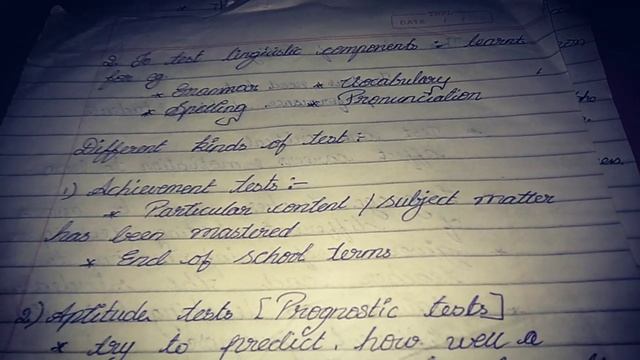 DATE
2. To test linguistic components :- learnt
for eg
* Grammar * Vocabulary
* Spelling * Pronunciation
Different kinds of test :-
1) Achievement tests :-
* Particular content / subject matter
has been mastired
* End of school terms
2) Aptitude tests [Prognostic tests]
* try to predict how well a